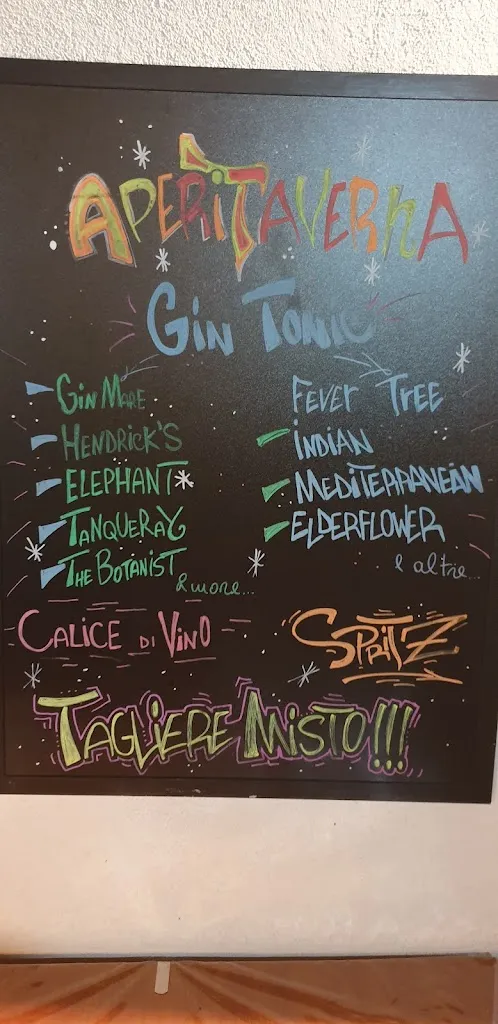 APERITAVERNA
GIN TONIC
GIN MARE
HENDRICK'S
ELEPHANT
TANQUERAY
THE BOTANIST
& more...
FEVER TREE
INDIAN
MEDITERRANEAN
ELDERFLOWER
e altre...
CALICE DI VINO
SPRITZ
TAGLIERE MISTO!!!